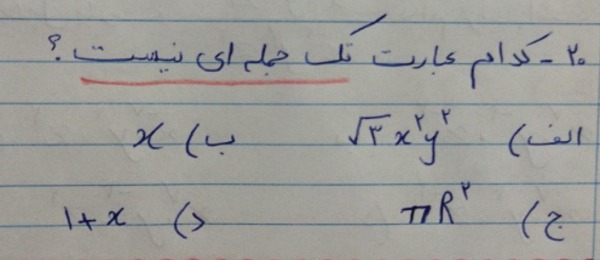 ۲۰ - کدام عبارت تک جمله ای نیست؟
الف) √۳ x²y² ب) x
ج) πR² د) ۱+x